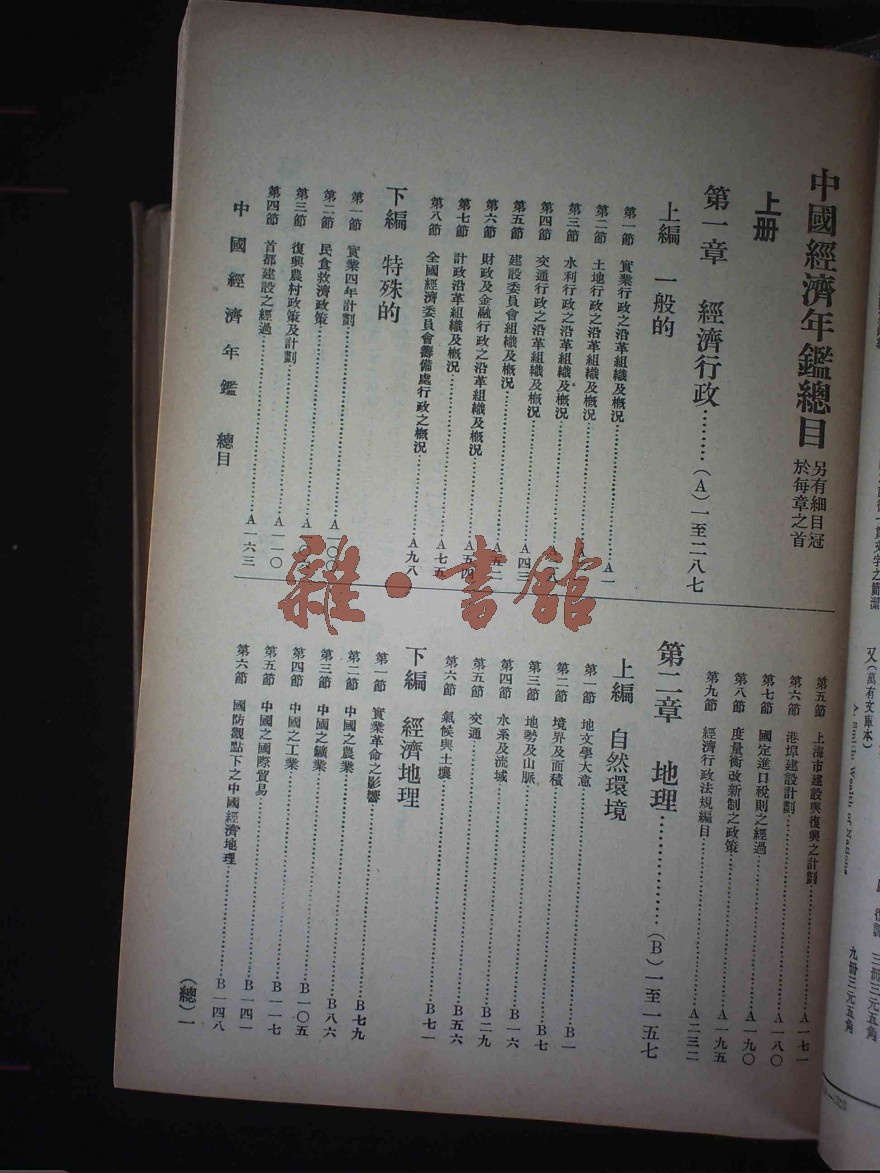 中國經濟年鑑總目 另有細目冠於每章之首
上册
第一章 經濟行政………(A)一至二八七
上編 一般的
第一節 實業行政之沿革組織及槪況………A一
第二節 土地行政之沿革組織及槪況………A
第三節 水利行政之沿革組織及槪況………A
第四節 交通行政之沿革組織及槪況………A
第五節 建設委員會組織及槪況………A四三
第六節 財政及金融行政之沿革組織及槪況………A五二
第七節 計政沿革組織及槪況………A七五
第八節 全國經濟委員會籌備處行政之槪況………A九八
下編 特殊的
第一節 實業四年計劃………A一〇〇
第二節 民食救濟政策………A一〇
第三節 復興農村政策及計劃………A一一〇
第四節 首都建設之經過………A一六三
第五節 上海市建設與復興之計劃………A一七一
第六節 港埠建設計劃………A一八〇
第七節 國定進口稅則之經過………A一九〇
第八節 度量衡改新制之政策………A一九五
第九節 經濟行政法規編目………A二三二
第二章 地理………(B)一至一五七
上編 自然環境
第一節 地文學大意………B一
第二節 境界及面積………B七
第三節 地勢及山脈………B一六
第四節 水系及流域………B二九
第五節 交通………B五六
第六節 氣候與土壤………B七一
下編 經濟地理
第一節 實業革命之影響………B七九
第二節 中國之農業………B八六
第三節 中國之鑛業………B一〇五
第四節 中國之工業………B一一七
第五節 中國之國際貿易………B一四一
第六節 國防觀點下之中國經濟地理………B一四八
中國經濟年鑑 總目
(總)一
雜·書館
又(萬有文庫本)
A. Smith: Wealth of Nations
三冊三元五角
九冊三元五角